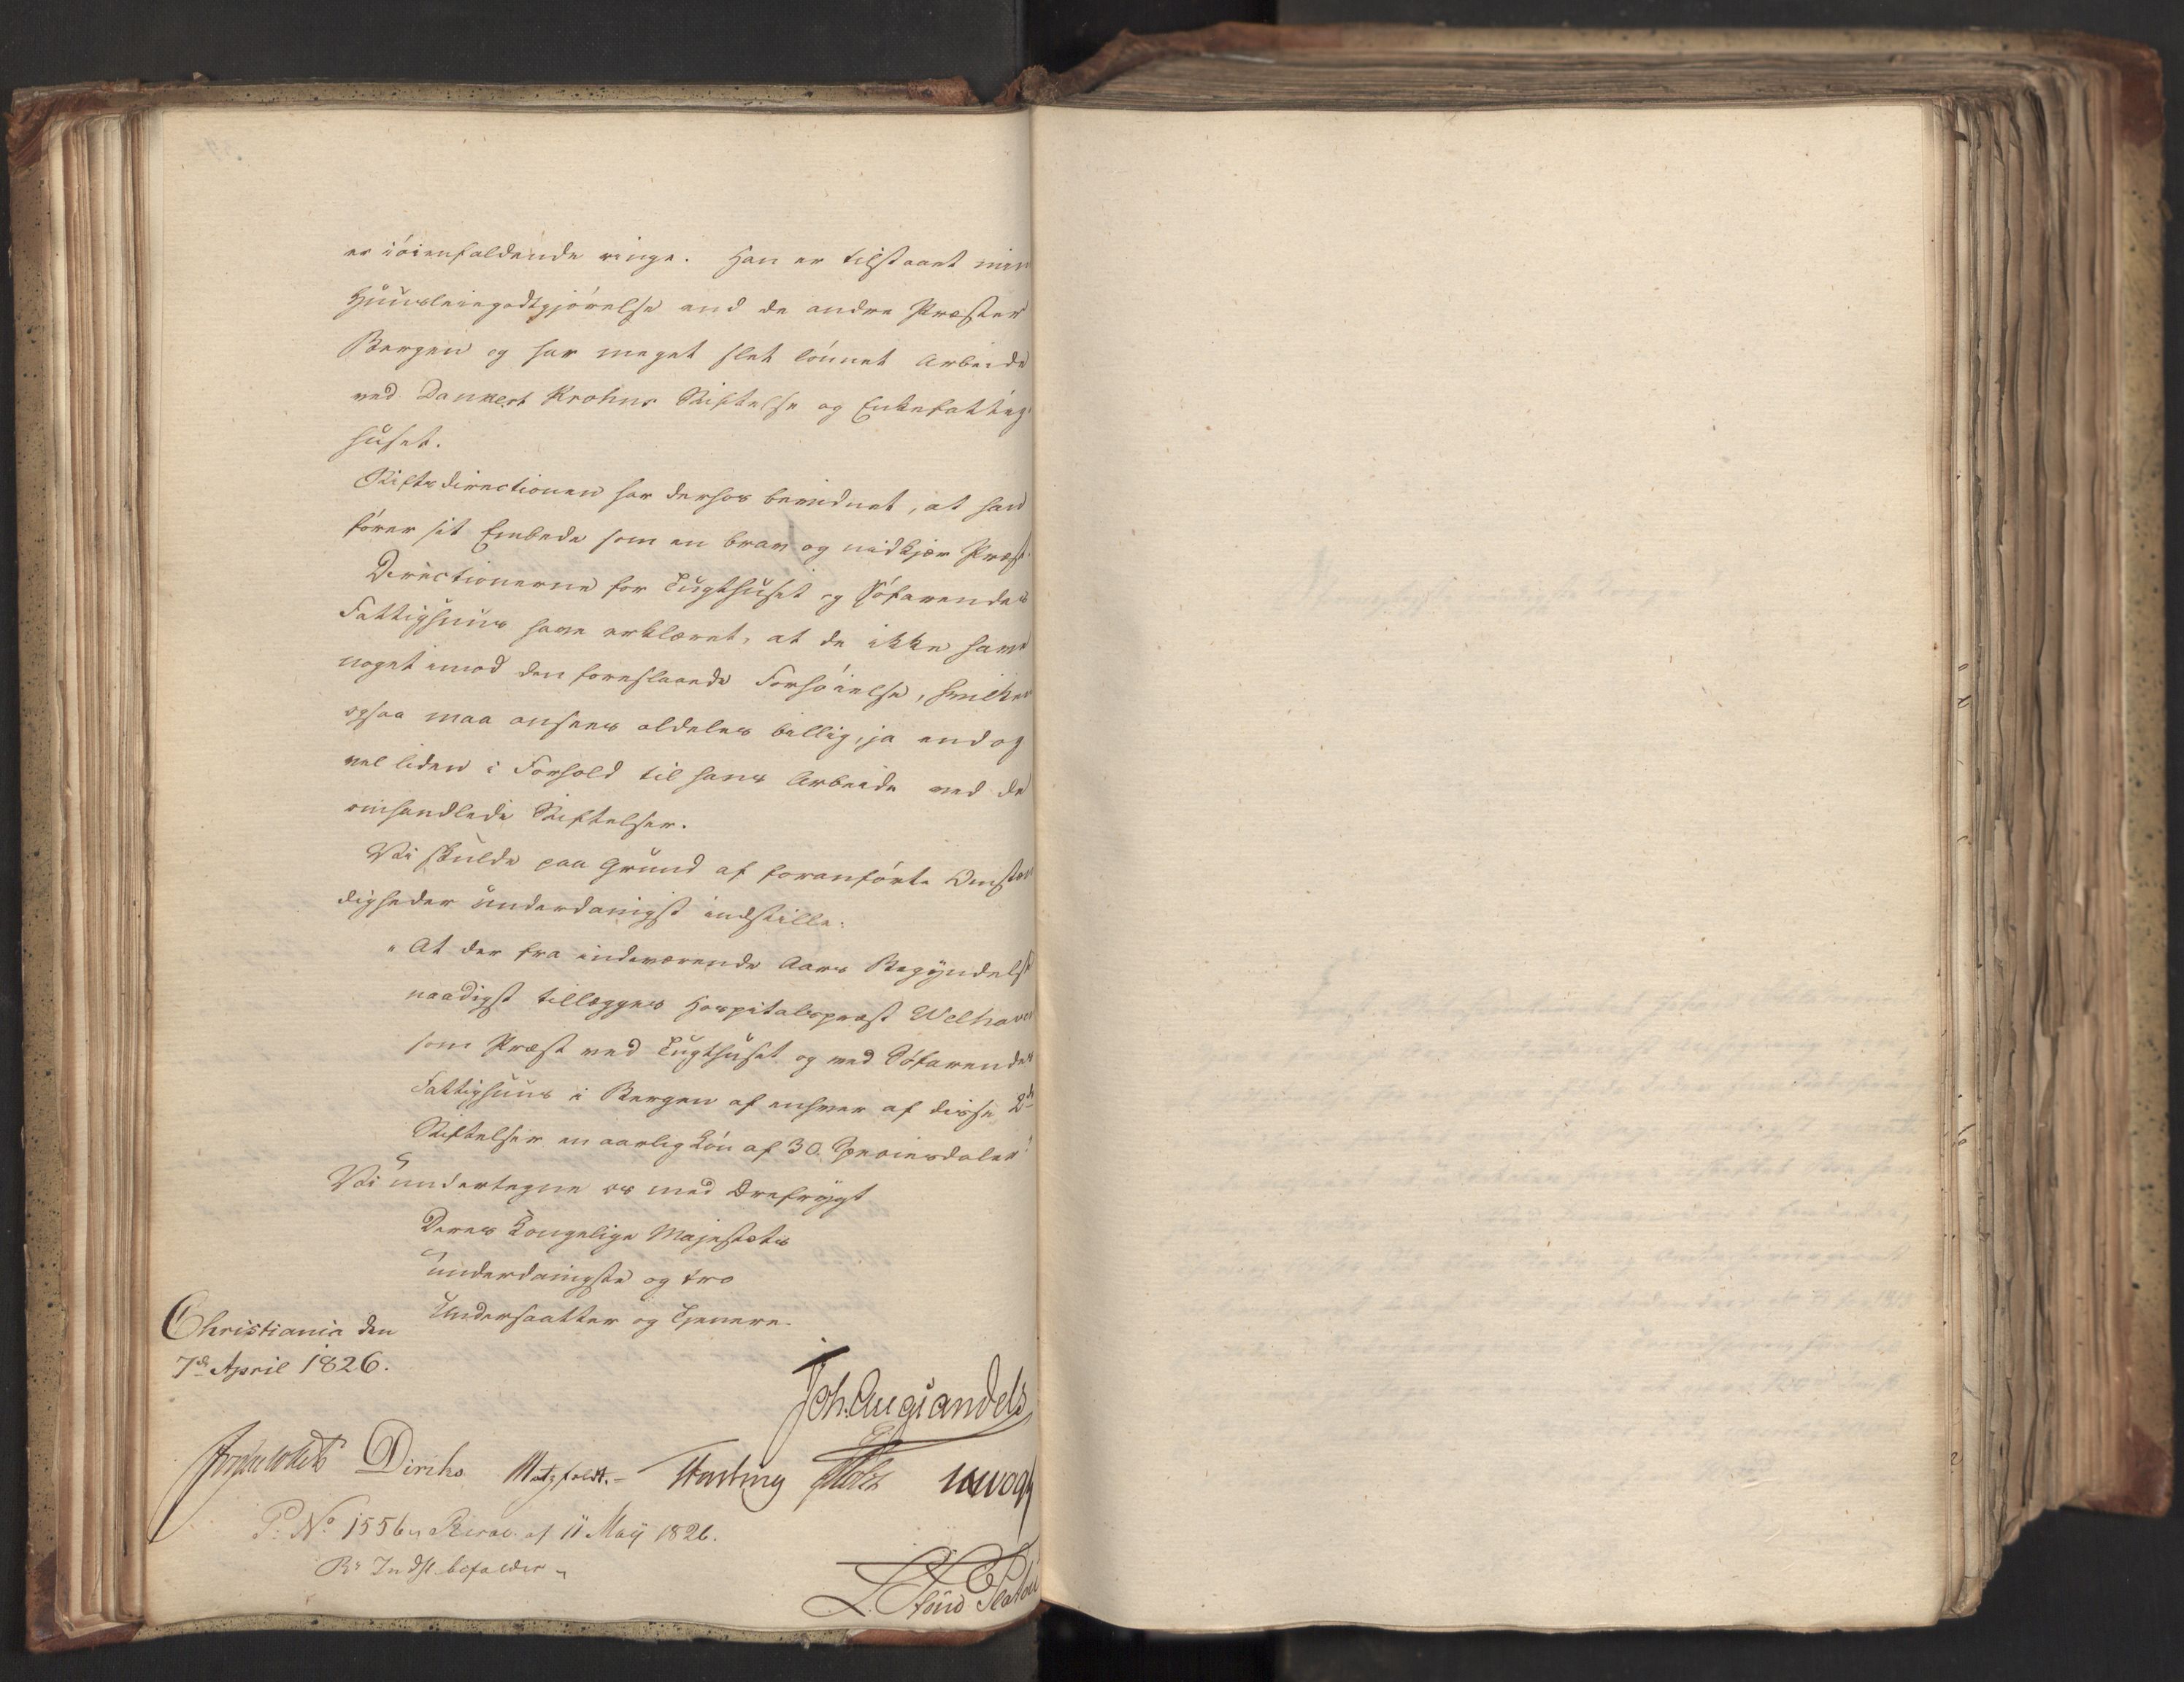 er iöienfaldende ringe. Han er tilstaaet min
Huusleiegodtgjörelse end de andre Præster
Bergen og har meget slet lönnet Arbeide
ved Dankert Krohns Stiftelse og Enkefattig
huset.
Stiftsdirectionen har derhos bevidnet, at han
förer sit Embede som en brav og nidkjær Præst.
Directionerne for Tugthuset og Söfarendes
Fattighuus have erklæret, at de ikke have
noget imod den foreslaaede Forhöielse, hvilken
ogsaa maa ansees aldeles billig, ja endog
vel liden i Forhold til hans Arbeide ved de
omhandlede Stiftelser.
Vi skulde paa Grund af foranförte Omstæn
digheder underdanigst indstille:
"At der fra indeværende Aars Begyndelse
naadigst tillægges Hospitalspræst Welhaven
som Præst ved Tugthuset og ved Söfarendes
Fattighuus i Bergen af enhver af disse 2de
Stiftelser en aarlig Lön af 30 Speciesdaler
Vi undertegne os med Ærefrygt
Deres Kongelige Majestæts
underdanigste og tro
Undersaatter og Tjenere.
Christiania den
7de April 1826.
Joh. Aug. Sandels
Diriks Motzfeldt. Fasting Holst Vogt
P. No. 1556 Resol. af 11 May 1826.
Rs Indst. bifaldes
L. Stoud Platou